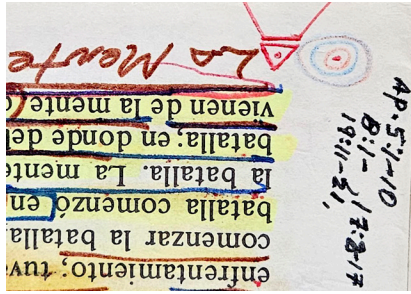 enfrentamiento; tuv
comenzar la batalla
batalla comenzó en
la batalla. La mente
batalla; en donde
vienen de la mente
La Mente
Ap. 5:1-10
8:1- 17:8-17
19:11-21,